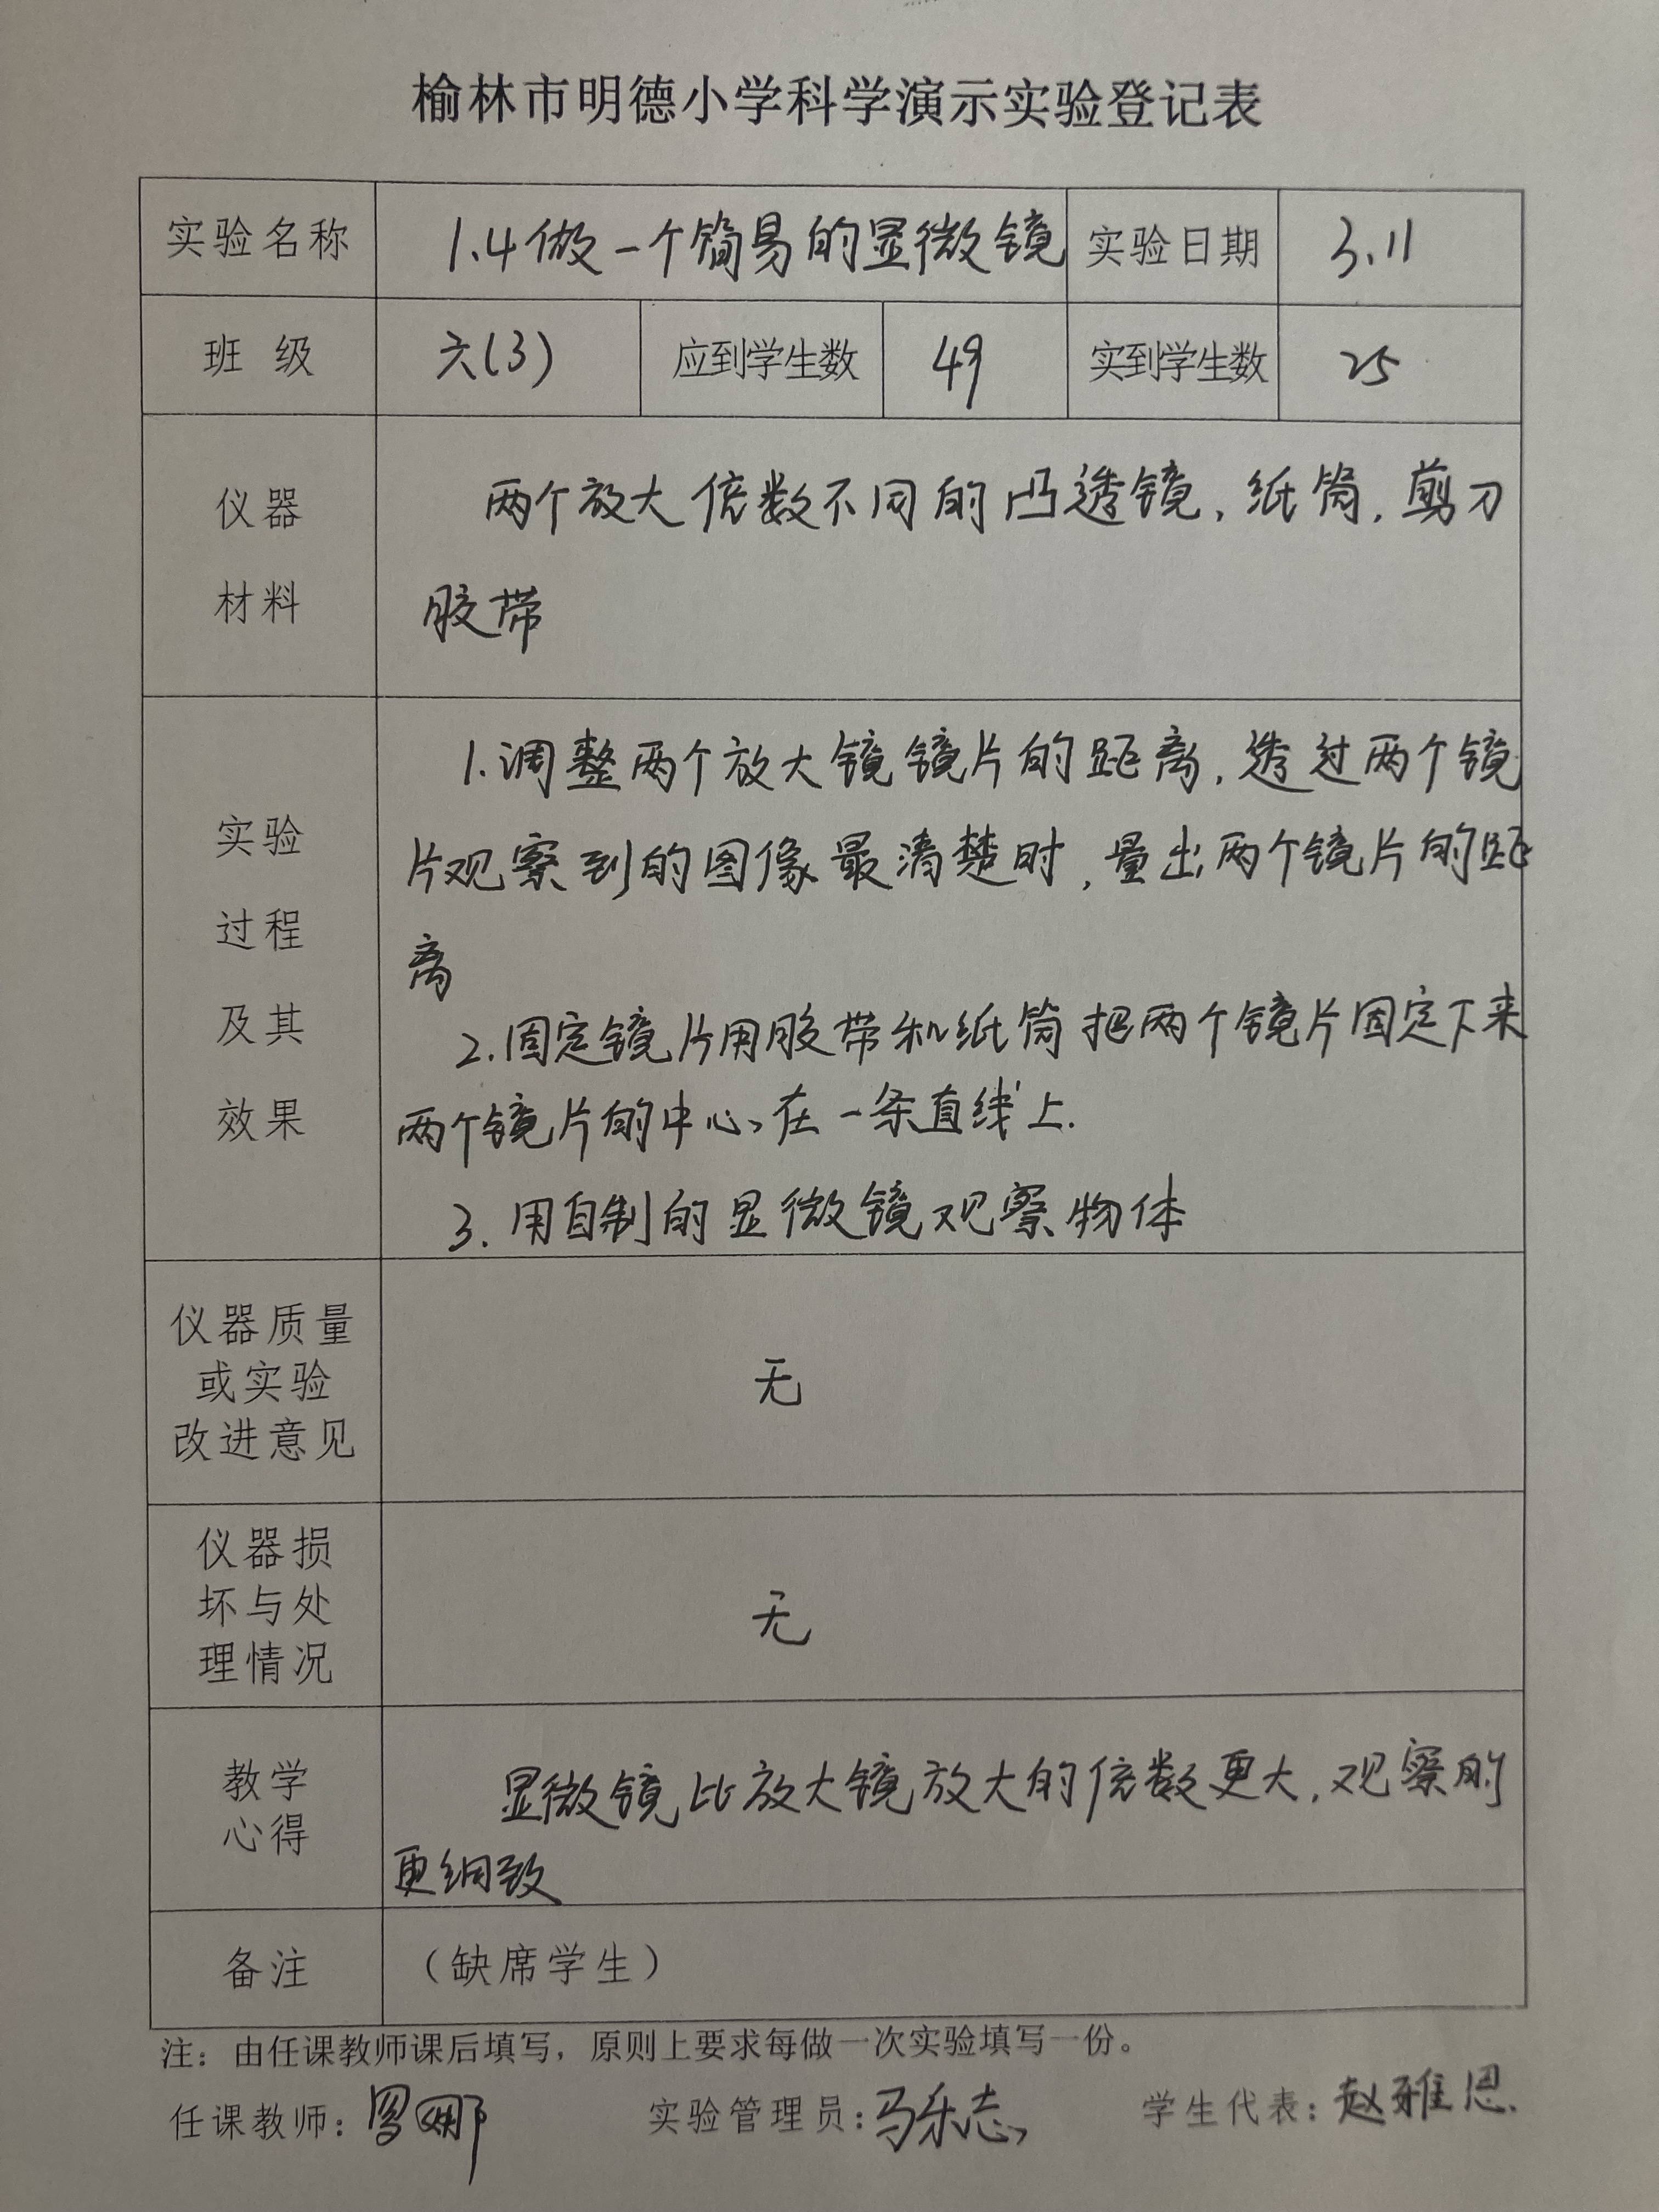 榆林市明德小学科学演示实验登记表
实验名称 1.4做一个简易的显微镜 实验日期 3.11
班 级 六(3) 应到学生数 49 实到学生数 25
仪器
材料
两个放大倍数不同的凸透镜,纸筒,剪刀
胶带
实验
过程
及其
效果
1.调整两个放大镜镜片的距离,透过两个镜
片观察到的图像最清楚时,量出两个镜片的距
离
2.固定镜片用胶带和纸筒把两个镜片固定下来
两个镜片的中心在一条直线上.
3.用自制的显微镜观察物体
仪器质量
或实验
改进意见
无
仪器损
坏与处
理情况
无
教学
心得
显微镜比放大镜放大的倍数更大,观察的
更细致
备注 (缺席学生)
注:由任课教师课后填写,原则上要求每做一次实验填写一份。
任课教师: 实验管理员:马乐志 学生代表:赵雅思